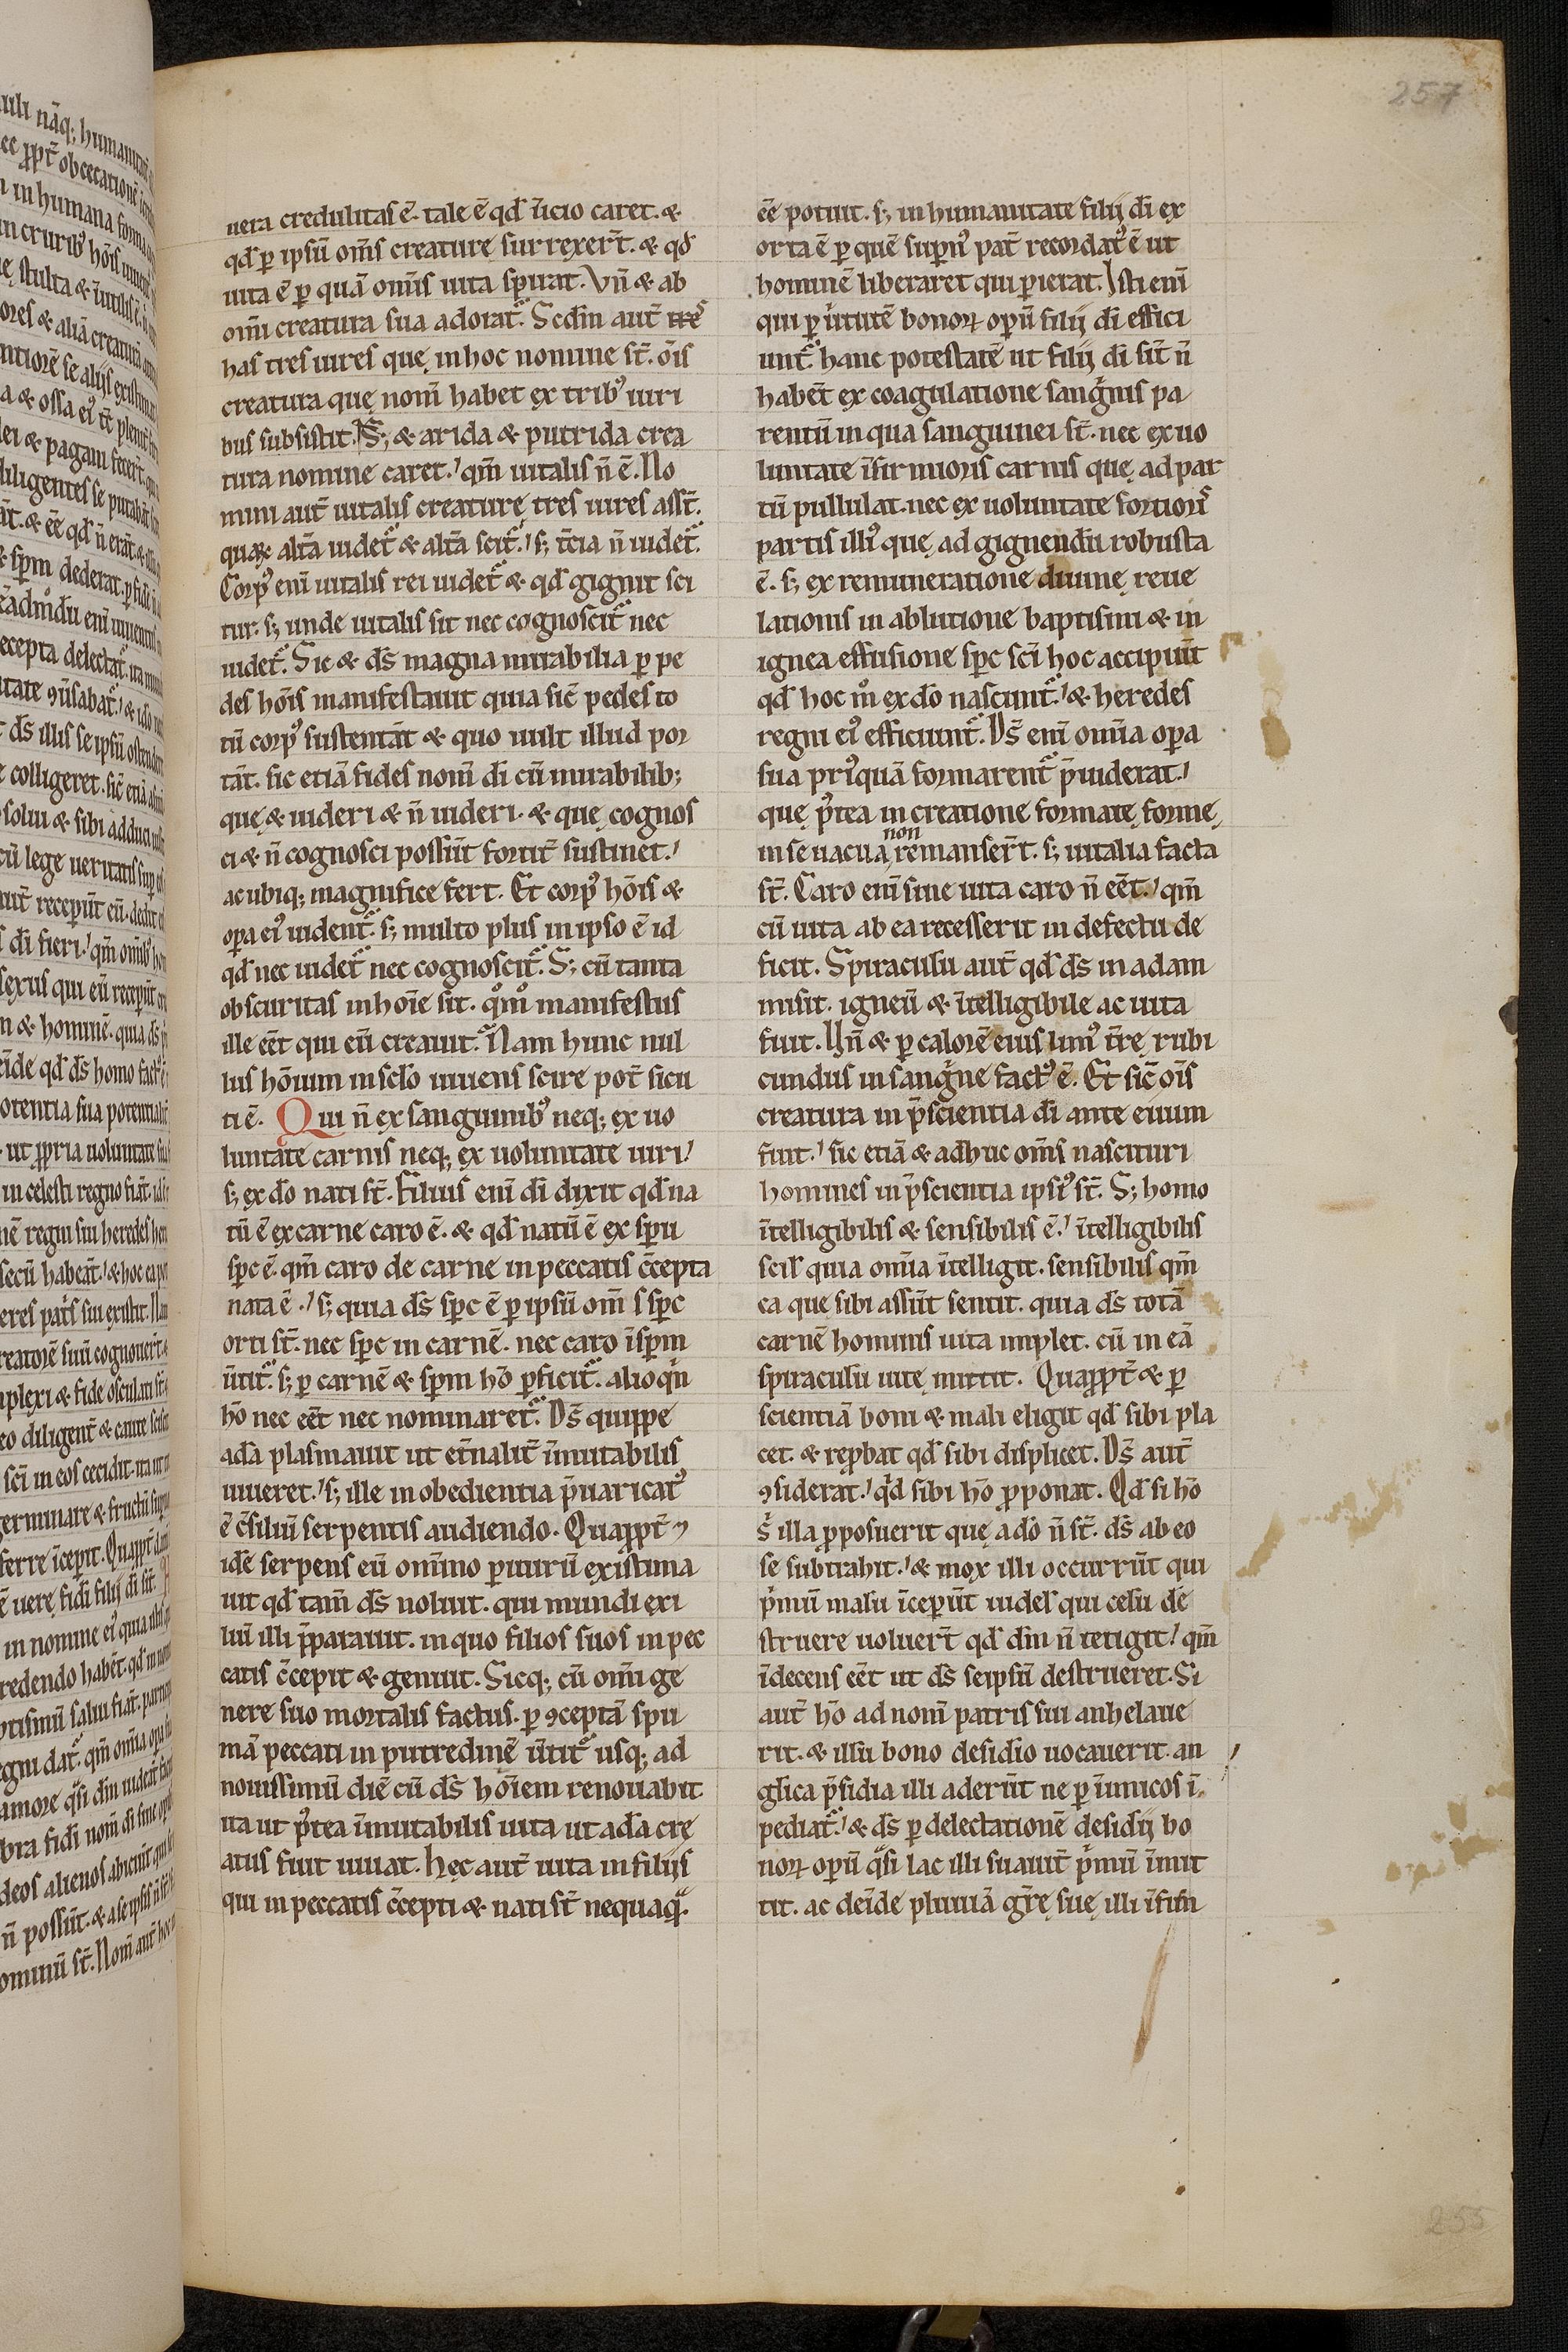 257
uera credulitas ē. tale ē qd̄ uicio caret. &
qd̄ ꝑ ipsū om̄s creaturę surrexer̄t. & qd̄
uita ē ꝑ quā omnis uita spirat. Vn̄ & ab
om̄i creatura sua adorat᷑. Sed̄m aut̄
has tres uires quę in hoc nomine st̄. ōis
creatura quę nom̄ habet ex tribꝰ uiri
bus subsistit. S; & arida & putrida crea
tura nomine caret. qm̄ uitalis n̄ ē. No
mini aut̄ uitalis creaturę tres uires asst̄.
quaꝝ alt̄a uidet᷑ & alt̄a scit᷑. s; t̄cia n̄ uidet᷑.
Corpꝰ eni uitalis rei uidet᷑ & qd̄ gignit sci
tur. s; unde uitalis sit nec cognoscit᷑ nec
uidet᷑. Sic & ds̄ magna mirabilia ꝑ pe
des hōis manifestauit quia sic̄ pedes to
tū corpꝰ sustentāt & quo uult illud por
tāt. sic etiā fides nom̄ di cū mirabilib;
quę & uideri & n̄ uideri. & quę cognos
ci & n̄ cognosci possūt fortit̄ sustinet.
ac ubiq; magnifice fert. Et corpꝰ hōis &
oꝑa eiꝰ uident᷑. s; multo plus in ipso ē id
qd̄ nec uidet᷑ nec cognoscit᷑. S; cū tanta
obscuritas in hoīe sit. qͦmͦ manifestus
ille eēt qui eū creauit. Nam hunc nul
lus hōium in sclo uiuens scire pot̄ sicu
ti ē. Qui n̄ ex sanguinibꝰ neq; ex uo
luntate carnis neq; ex uoluntate uiri
s; ex dō nati st̄. Filius eni di dixit qd̄ na
tū ē ex carne caro ē. & qd̄ natū ē ex spu
spc ē. qm̄ caro de carne in peccatis c̄cepta
nata ē. s; quia ds̄ spc ē ꝑ ipsū om̄s spc
orti st̄. nec spc in carnē. nec caro ī spm
ūtit᷑. s; ꝑ carnē & spm hō ꝑficit᷑. alioqͥn
hō nec eēt nec nominaret᷑. Ds̄ quippe
adā plasmauit ut et̄nalit̄ īmutabilis
uiueret. s; ille inobedientia p̄uaricatꝰ
ē c̄siliū serpentis audiendo. Quaꝓpt̄
idē serpens eū omīno ꝑiturū existima
uit qd̄ tam̄ ds̄ noluit. qui mundi exi
liū illi p̄parauit. in quo filios suos in pec
catis c̄cepit & genuit. Sicq; cū om̄i ge
nere suo mortalis factus. ꝑ ꝯceptā spu
mā peccati in putredinē ūtit᷑ usq; ad
nouissimū diē cū ds̄ hōiem renouabit
ita ut p̄ꝰtea īmutabilis uita ut adā cre
atus fuit uiuat. Hęc aut̄ uita in filijs
qui in peccatis c̄cepti & nati st̄ nequaqͣ.
eē potuit. s; in humanitate filij di ex
orta ē ꝑ quē suꝑnꝰ pat̄ recordatꝰ ē ut
hominē liberaret qui ꝑierat. Isti eni
qui ꝑ ūtutē bonoꝝ oꝑū filij di effici
unt᷑. hanc potestatē ut filij di sīt n̄
habēt ex coagulatione sangͥnis pa
rentū in qua sanguinei st̄. nec ex uo
luntate īfirmioris carnis quę ad par
tū pullulat. nec ex uoluntate fortioris
partis illiꝰ quę ad gignendū robusta
ē. s; ex remuneratione diuinę reue
lationis in ablutione baptismi & in
ignea effusione spc sci hoc accipiūt
qd̄ hoc mͦ ex dō nascunt᷑. & heredes
regni eiꝰ efficiunt᷑. Ds̄ eni omīa oꝑa
sua priꝰquā formarent᷑ p̄uiderat.
quę p̄ꝰtea in creatione formate formę
non
in se uacua remanser̄t. s; uitalia facta
st̄. Caro eni sine uita caro n̄ eēt. qm̄
cū uita ab ea recesserit in defectu de
ficit. Spiraculū aut̄ qd̄ ds̄ in adam
misit. igneū & ītelligibile ac uita
fuit. Un̄ & ꝑ calorē eius limꝰ t̄rę rubi
cundus in sangͥne factꝰ ē. Et sic ōis
creatura in p̄scientia di ante euum
fuit. sic etiā & adhuc om̄s nascituri
homines in p̄scientia ipsiꝰ st̄. S; homo
ītelligibilis & sensibilis ē. ītelligibilis
scil quia omīa ītelligit. sensibilis qm̄
ea que sibi assūt sentit. quia ds̄ totā
carnē hominis uita implet. cū in eā
spiraculū uitę mittit. Quaꝓpt̄ & ꝑ
scientiā boni & mali eligit qd̄ sibi pla
cet. & reꝓbat qd̄ sibi displicet. Ds̄ aut̄
ꝯsiderat. qͥd sibi hō ꝓponat. Qd̄ si hō
s̄ illa ꝓposuerit quę a dō n̄ st̄. ds̄ ab eo
se subtrahit. & mox illi occurrūt qui
pͥmū malū īceperūt uidel qui celū de
struere uoluer̄t qd̄ dm̄ n̄ tetigit. qm̄
īdecens eēt ut ds̄ seipsū destrueret. Si
aut̄ hō ad nom̄ patris sui anhelaue
rit. & illū bono desidio uocauerit. an
glica p̄sidia illi aderūt ne ꝑ īimicos ī
pediat᷑. & ds̄ ꝑ delectationē desidij bo
noꝝ oꝑū qͣsi lac illi suauit̄ pͥmū īmit
tit. ac deīde pluuiā gr̄ę suę illi īfūn
255